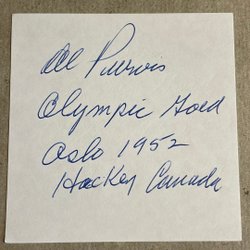 Al Purvis
Olympic Gold
Oslo 1952
Hockey Canada